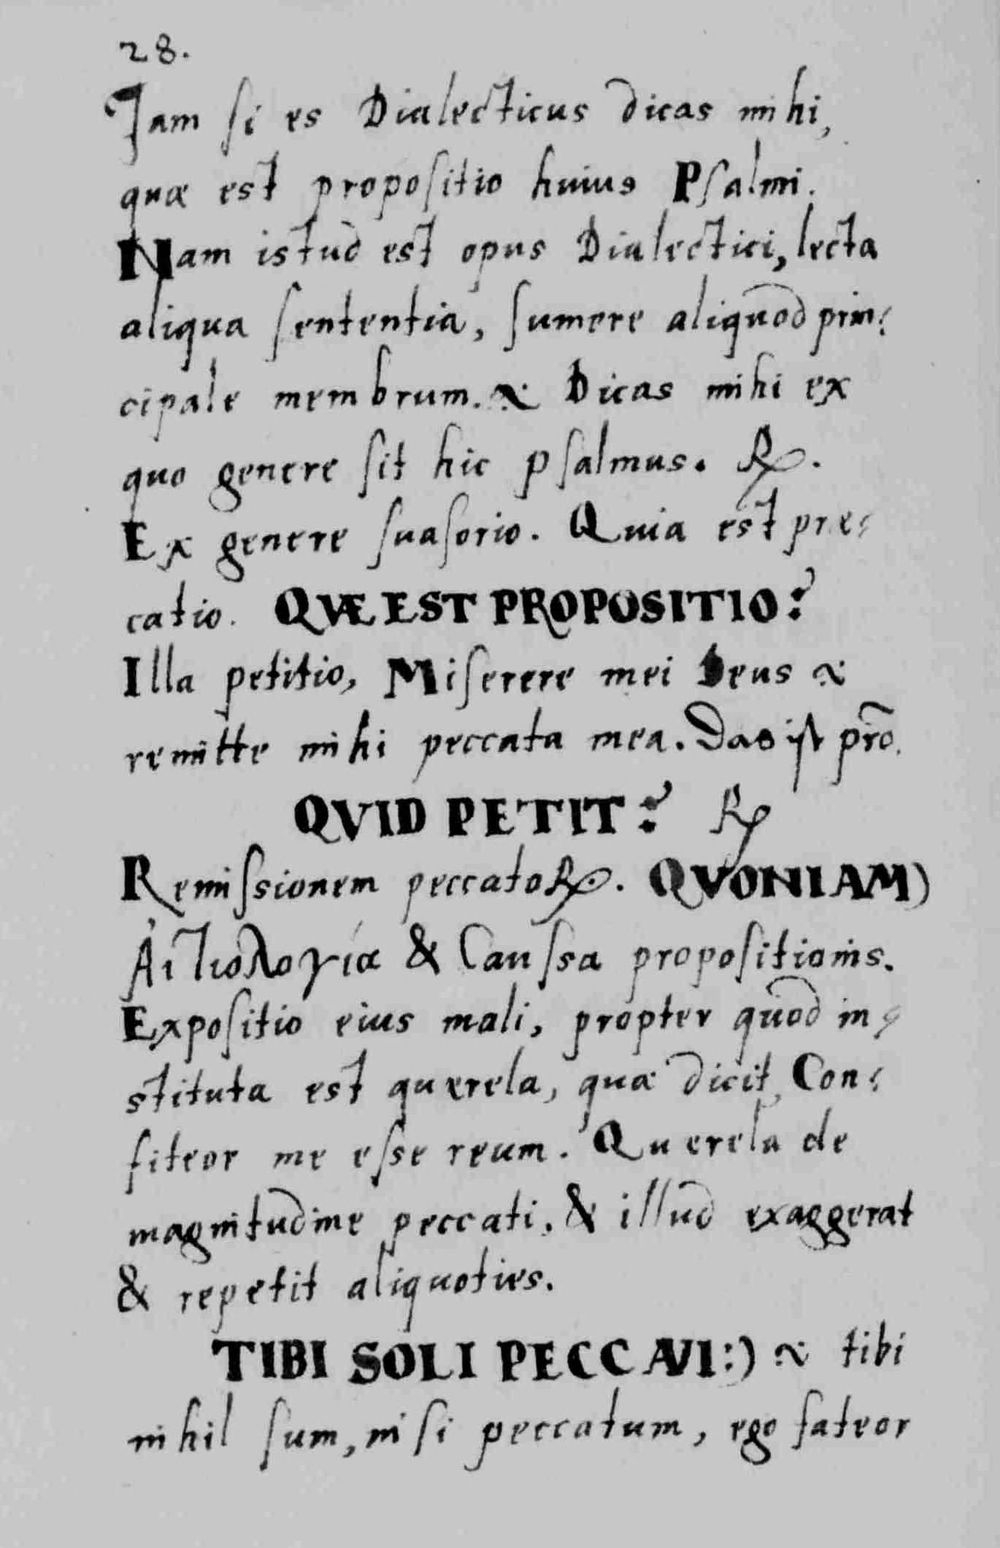 28.
Jam ſi es Dialecticus dicas mihi,
quæ est propoſitio huius Pſalmi.
Nam istud est opus Dialectici, lecta
aliqua ſententia, ſumere aliquod prin⸗
cipale membrum. & Dicas mihi ex
quo genere ſit hic pſalmus. ℞.
Ex genere ſuaſorio. Quia est pre⸗
catio. QVÆ EST PROPOSITIO?
Illa petitio, Miſerere mei Deus &
remitte mihi peccata mea. Das iſt pro.
QVID PETIT? ℞
Remiſsionem peccatoꝝ. QVONIAM)
Ἀιτιολογία & Cauſsa propoſitionis.
Expoſitio eius mali, propter quod in⸗
stituta est querela, qua dicit, Con⸗
fiteor me eſse reum. Querela de
magnitudine peccati. & illud exaggerat
& repetit aliquoties.
TIBI SOLI PECCAVI:) & tibi
nihil ſum, niſi peccatum, ego fateor